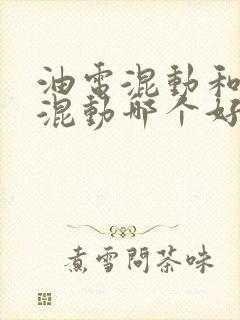 油電混動和
混動哪个好
煮雪問茶味